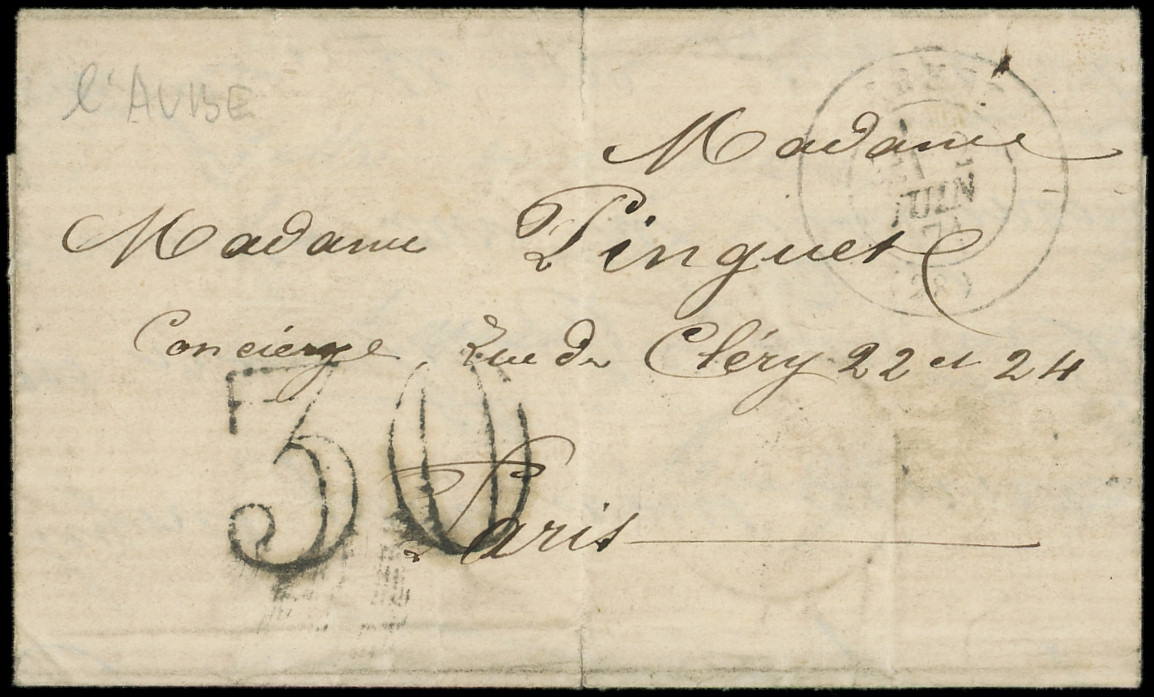 l'AUBE
Madame
Madame Pinguet
Concierge Rue de Cléry 22 et 24
30
Paris
BREST
JUIN
71
(28)